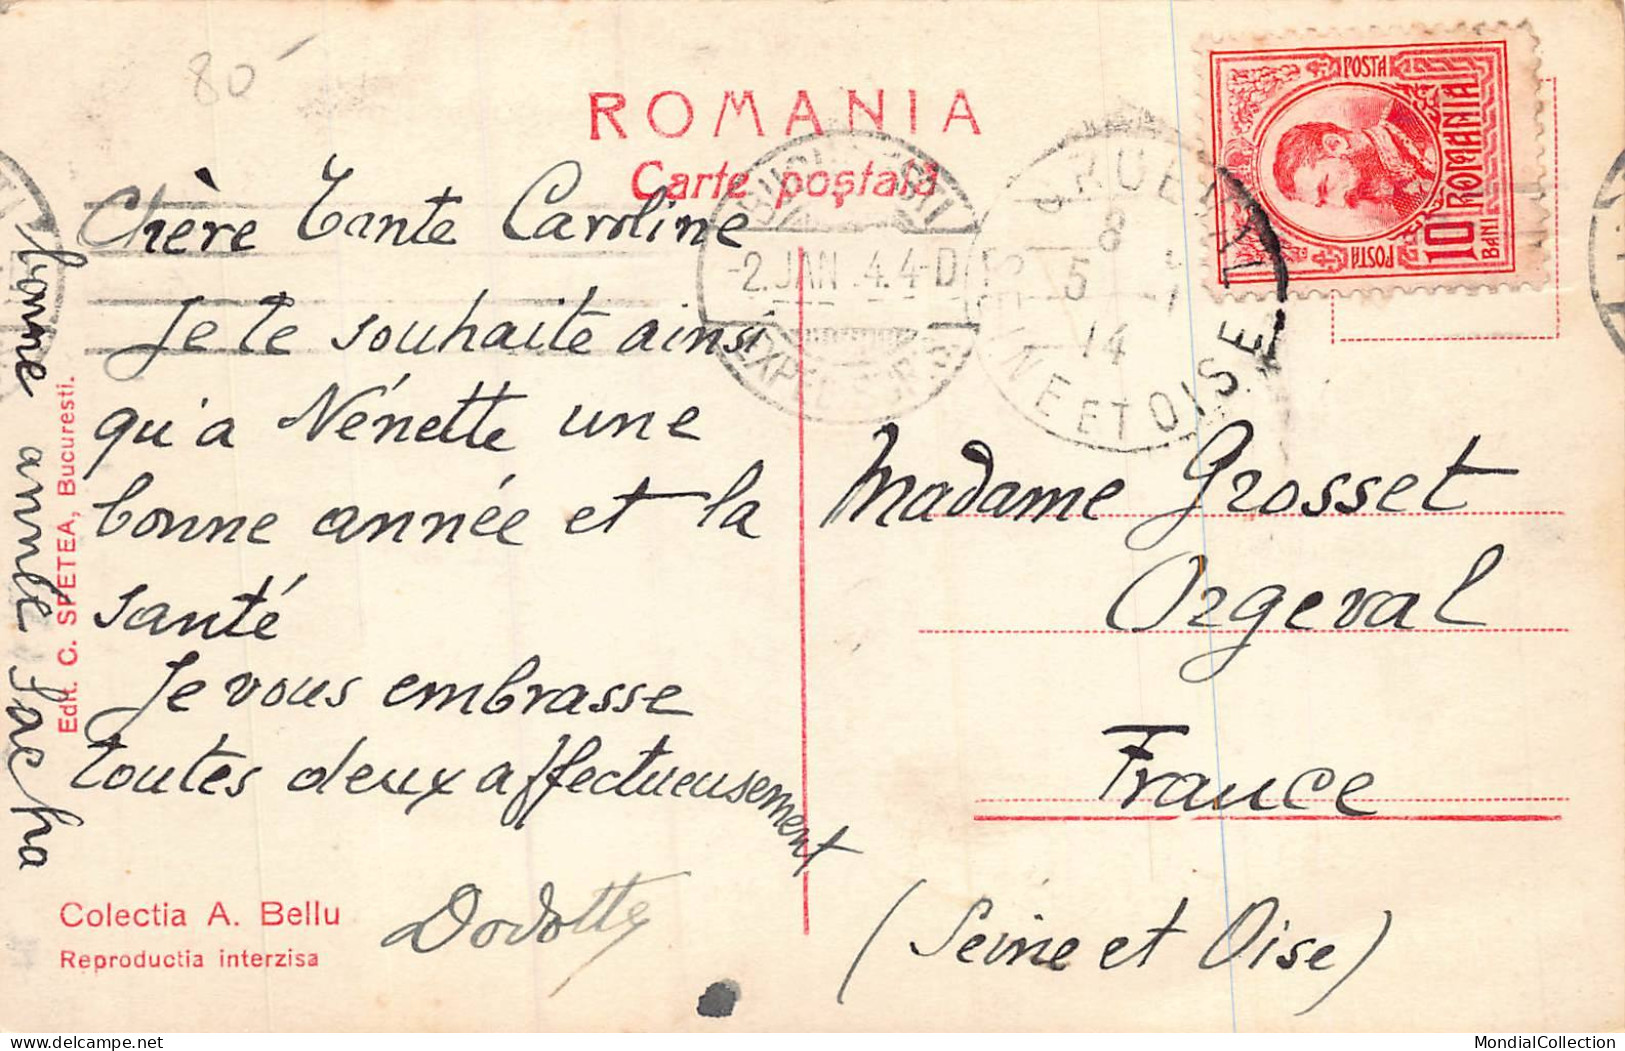 80-
ROMANIA
Carte poștală
POSTA
ROMANIA
10
BANI
POSTA
-2.JAN 4.4-D
EXPED
8
5 -1
14
SEINE ET OISE
Chère Tante Caroline
Je te souhaite ainsi
qu'a Nénette une
bonne année et la
santé
Je vous embrasse
toutes deux affectueusement
Dodotte
bonne année Sacha
Edit. C. SFETEA, Bucuresti.
Colectia A. Bellu
Reproductia interzisa
Madame Grosset
Orgeval
France
(Seine et Oise)
MondialCollection